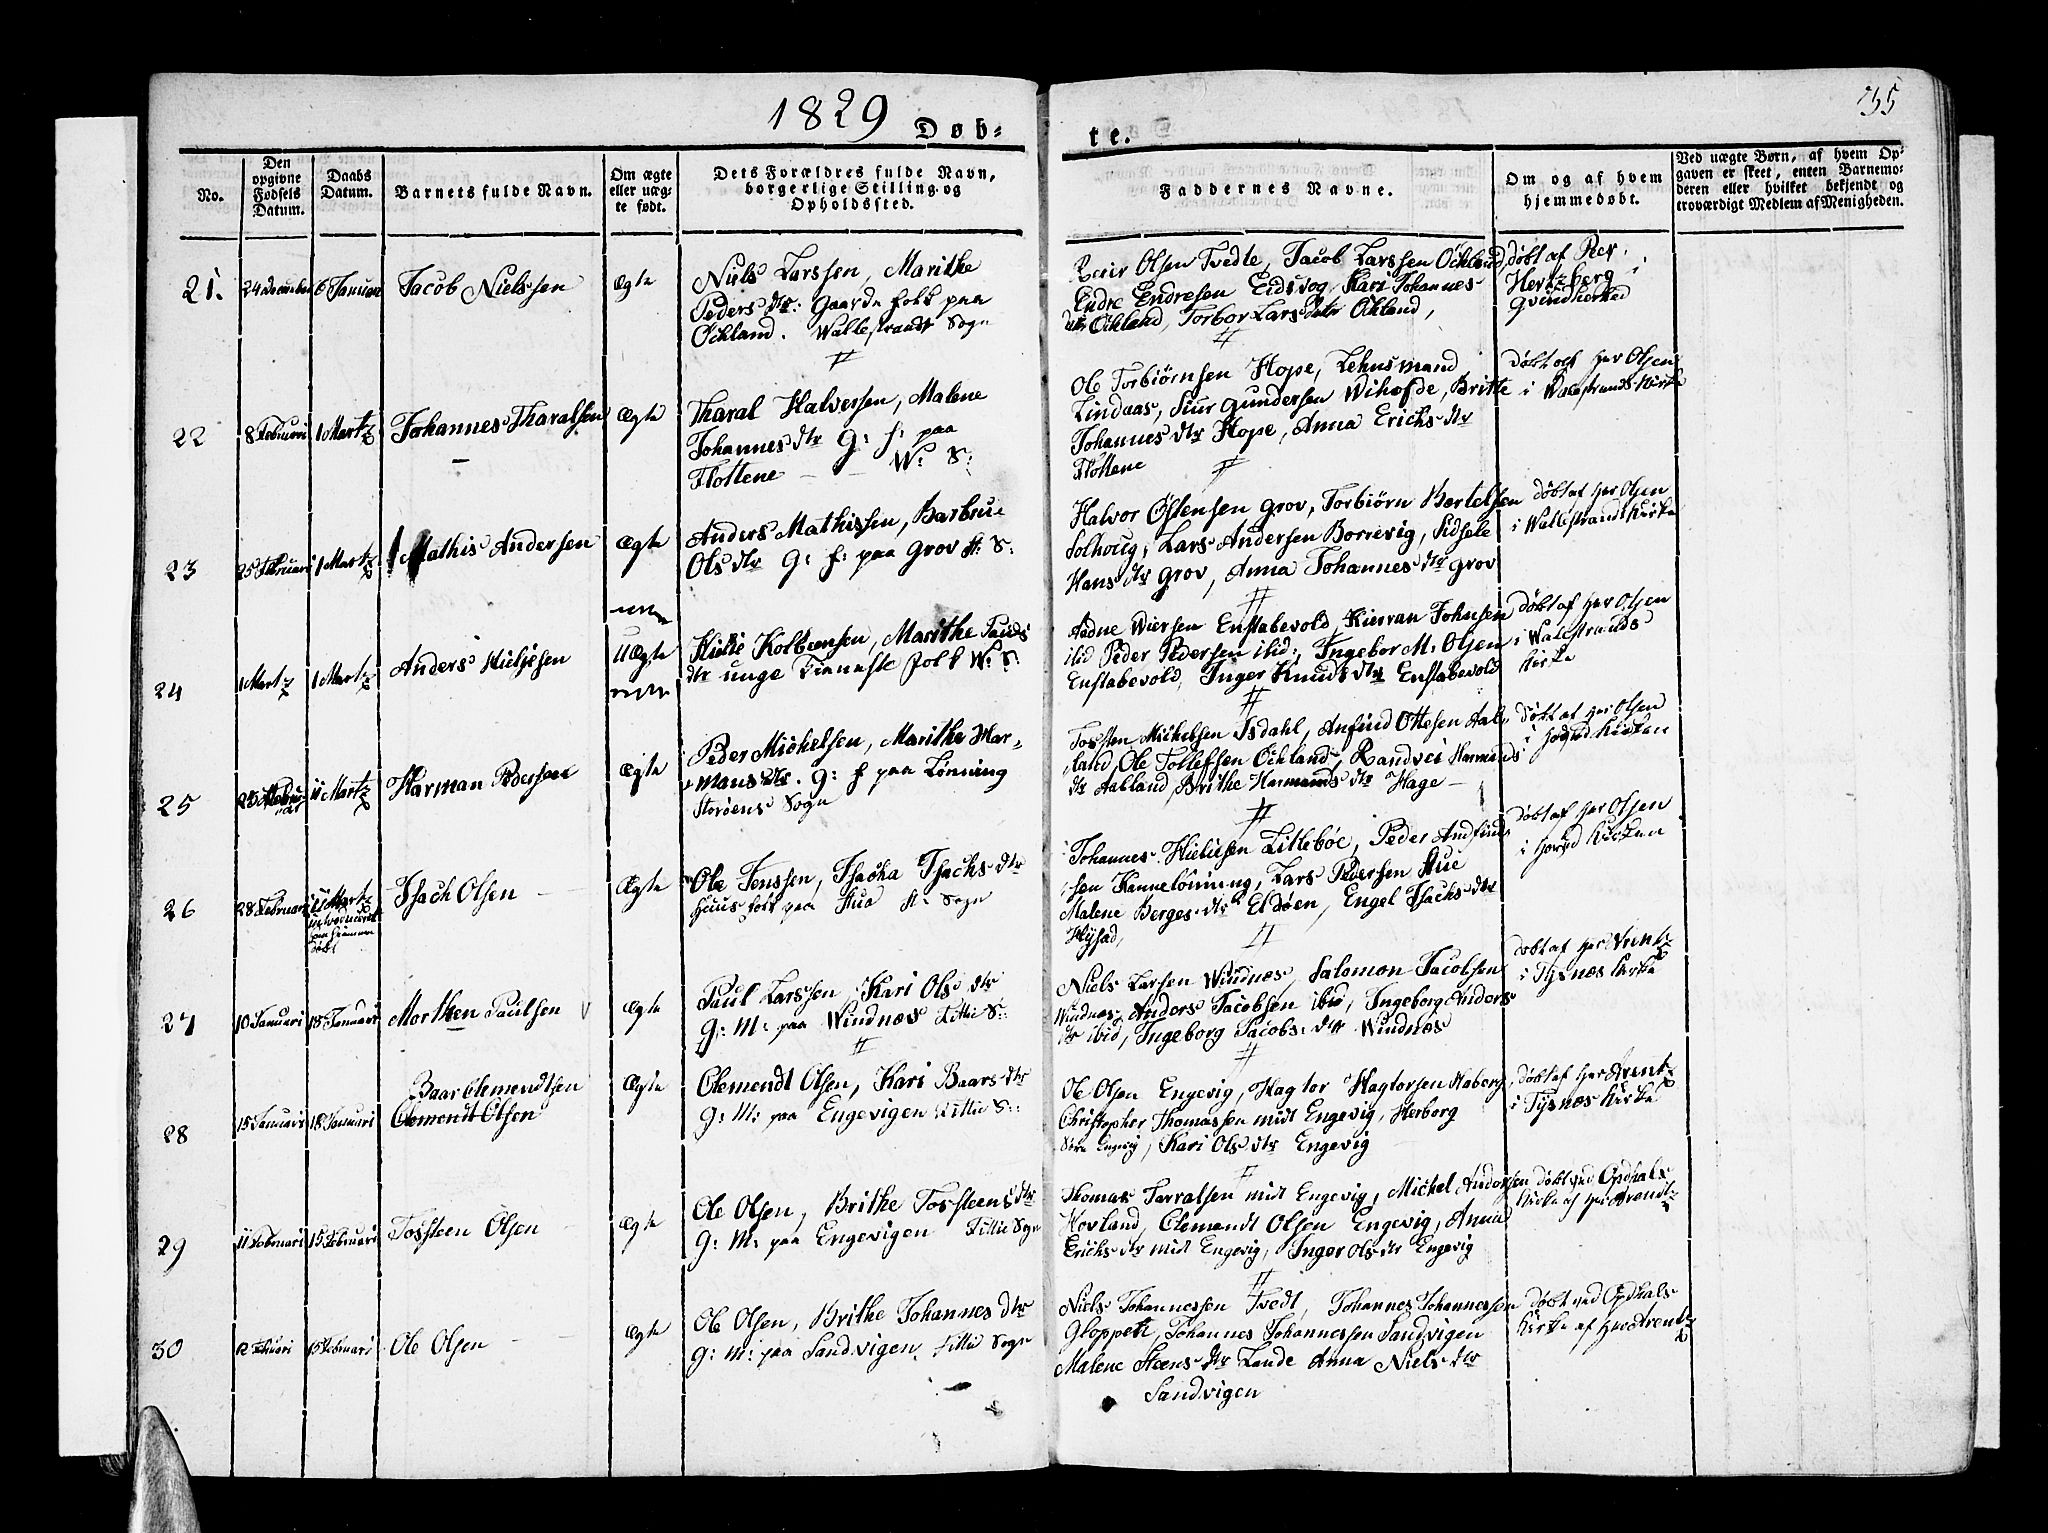 1829
Døb-
te.
No.
Den
opgivne
Fødsels
Datum.
Daabs
Datum.
Barnets fulde Navn.
Om ægte
eller uæg-
te født.
Dets Forældres fulde Navn,
borgerlige Stilling og
Opholdssted.
Faddernes Navne.
Om og af hvem
hjemmedøbt.
Ved uægte Børn, af hvem Op-
gaven er skeet, enten Barnemo-
deren eller hvilket bekjendt og
troværdigt Medlem af Menigheden.
21.
24 December
6 Januari
Jacob Nielssen
Ægte
Niels Larssen, Marithe
Peders dtr: Gaarde folk paa
Öckland. Wallestrandt Sogn
Olsen Tvedte, Jacob Larssen Öckland,
Endre Endresen Eidsvog, Kari Johannes
dtr Öckland, Torbor Lars dttr Öckland,
døbt af
Hertzberg i
Qvindherred
22
8 Februari
1 Martz
Johannes Tharalsen
Ægte
Tharal Halversen, Malene
Johannes dtr G: f: paa
Flottene W: S:
Ole Torbiörnsen Hope, Lehnsmand
Lindaas, Siur Gundersen Wihofde, Britte
Johannes dtr Hope, Anna Erichs dtr
Flottene
døbt af Her Olsen
i Walestrands Kirke
23
25 Februari
1 Martz
Mathis Andersen
Ægte
Anders Mathissen, Barbrue
Ols dtr G: f: paa Grov S:
Halvor Östensen Grov, Torbiörn Bertelsen
Solhoug, Lars Andersen Borrevig, Sidsele
Hans dtr Grov, Anna Johannes dtr Grov
døbt af Her Olsen
i Wallestrandt Kirke
24
1 Martz
1 Martz
Anders Kieljesen
UÆgte
Kolbeensen, Marithe
dtr unge Tieneste folk W: S:
Aadne Wiersen Enstabevold, Kierran Johnsen
ibid Peder Pedersen ibid:, Ingebor M: Olsen
Enstabevold, Inger Knuds dtr Enstabevold
døbt af Her Olsen
i Walestrands
Kirke
25
11 Martz
Harman Pedersen
Ægte
Peder Michelsen, Marithe Har-
mans dtr. G: f paa Lönning
Storöens Sogn
Tosten Michelsen Isdahl, Anfind Ottesen Aal-
land, Ole Tollefsen Öckland, Randvei Harmands
dtr Aabland, Brithe Harmands dtr Hage
døbt af Her Olsen
i Kirken
26
28 Februari
11 Martz
Isach Olsen
Ægte
Ole Jenssen, Isacka Isachs dtr
Huus folk paa Hua Sogn
Johannes Litlebøe, Peder Andfinds
sen Kannelönning, Lars Pedersen Hue
Malene Berges dtr Eldöen, Engel Isachs dtr
Hysad,
døbt af Her Olsen
i Kirken
27
10 Januari
18 Januari
Morthen Paulsen
Ægte
Paul Larssen, Kari Ols dtr
G: M: paa Windnæs Fittie S:
Niels Larsen Windnæs, Salomon Jacobsen
Windnæs, Anders Jacobsen ibid, Ingeborg Anders
dtr ibid, Ingeborg Jacobs: dtr Windnæs
døbt af Her Arentz
i Tysnes Kirke
28
15 Januari
18 Januari
Baar Clemendtsen
Clemendt Olsen
Ægte
Clemendt Olsen, Kari Baars dtr
G: M: paa Engevigen Fittie S:
Ole Olsen Engevig, Hagtor Hagtorsen Haberg
Christopher Thomassen midt Engevig, Herborg
Engevig, Kari Ols dtr Engevig
døbt af Her Arentz
i Tysnes Kirke
29
11 Februari
15 Februari
Tosteen Olsen
Ægte
Ole Olsen, Brithe Tosteens dtr
G: M: paa Engevigen Fittie Sogn
Thomas Tarralsen midt Engevig, Michel Andersen
Hovland, Clemendt Olsen Engevig, Anna
Erichs dtr midt Engevig, Inger Ols dtr Engevig
døbt ved Opdals
Kirke af Her Arendtz
30
15 Februari
Ole Olsen
Ægte
Ole Olsen, Brithe Johannes dtr
G: M: paa Sandvigen, Fittie Sogn
Niels Johannessen Tvedt, Johannes Johannessen
Gloppen, Johannes Johannessen Sandvigen
Malene Steens dtr Lande Anna Niels dtr
Sandvigen
døbt ved Opdals
Kirke af Her Arentz